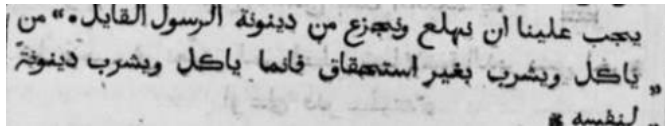 يجب علينا ان نهلع ونجزع من دينونة الرسول القايل. «من
„ ياكل ويشرب بغير استحقاق فانما ياكل ويشرب دينونة
„ لنفسه